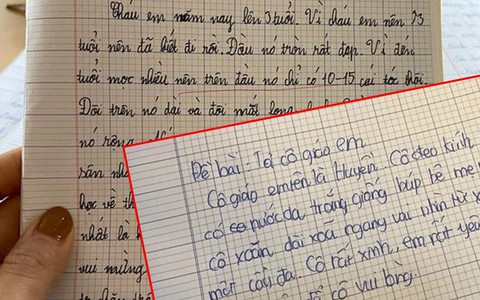 Cháu em năm nay lên 3 tuổi. Vì cháu em nên 23
tuổi nên đã biết đi rồi. Đầu nó tròn rất đẹp. Vì đến
tuổi mọc nhiều nên trên đầu nó chỉ có 10-15 cái tóc thôi.
Đôi trên nó dài và đôi mắt long
nó rộng
sân nh
học về th
nhất là
vui mừng
Đề bài: Tả cô giáo em
Cô giáo em tên là Huyền. Cô đeo kính
có nước da trắng giống búp bê
cô xoăn dài xoã ngang vai nhìn từ x
một cây đa. Cô rất xinh, em rất yêu
để cô vui lòng.